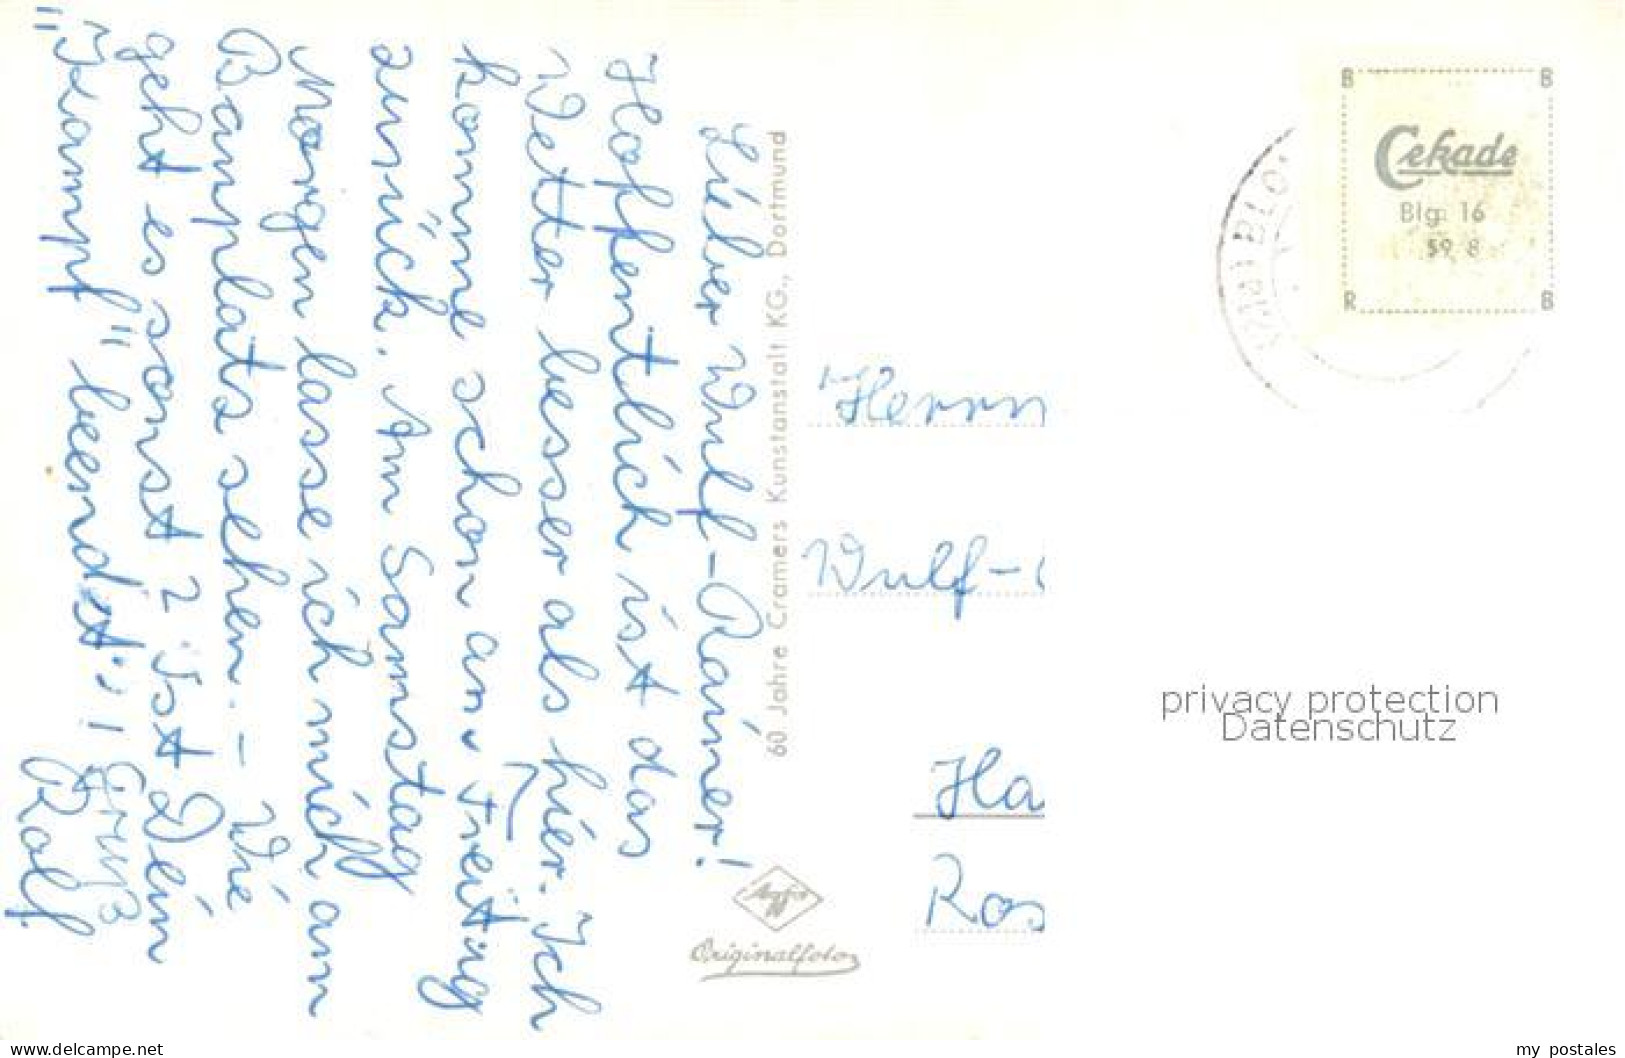 Lieber Wulf-Rainer!
Hoffentlich ist das
Wetter besser als hier. Ich
komme schon am Freitag
zurück. Am Samstag
Morgen lasse ich mich am
Bauplats sehen. – Wie
geht es sonst? Ist Dein
"Kampf" beendet?
Gruß
Rolf.
60 Jahre Cramers Kunstanstalt KG., Dortmund
Agfa
Originalfoto
B B
Cekade
Blg. 16
59/8
R B
Herrn
Wulf-
Ha
Ros
privacy protection
Datenschutz
www.delcampe.net
my_postales